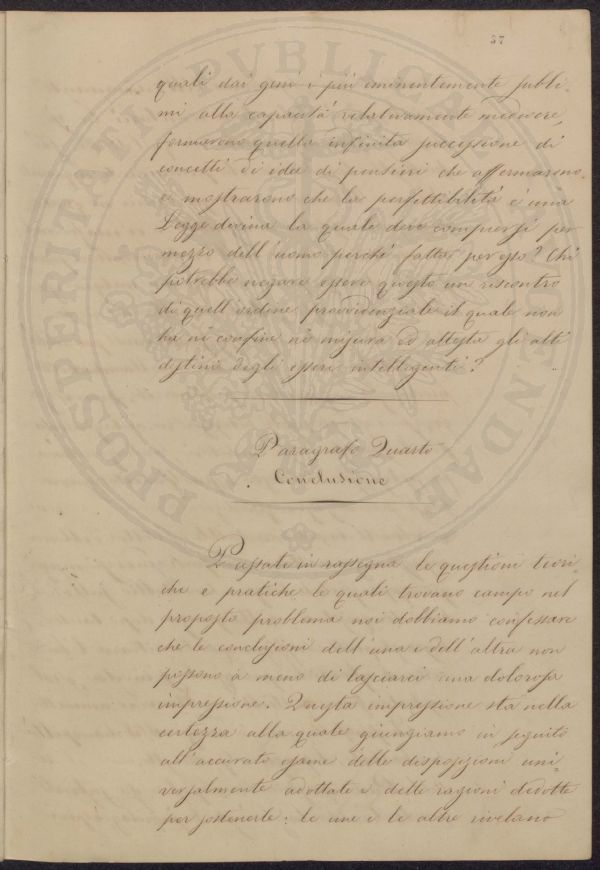 37
quali dai geni i più eminentemente subli-
mi alla capacità relativamente mediocre,
formarono quella infinita successione di
concetti di idee di pensieri che affermarono
e mostrarono che la perfettibilità è una
Legge divina la quale deve compiersi per
mezzo dell'uomo perchè fatta per esso? Chi
potrebbe negare essere questo un riscontro
di quell'ordine provvidenziale il quale non
ha nè confine nè misura ed attesta gli alti
destini degli esseri intelligenti?
Paragrafo Quarto
Conclusione
Passate in rassegna le questioni teori-
che e pratiche le quali trovano campo nel
proposto problema noi dobbiamo confessare
che le conclusioni dell'una e dell'altra non
possono a meno di lasciarci una dolorosa
impressione. Questa impressione sta nella
certezza alla quale giungiamo in seguito
all'accurato esame delle disposizioni uni-
versalmente adottate e delle ragioni dedotte
per sostenerle: le une e le altre rivelano
PROSPERITATI PVBLICAE AVGENDAE